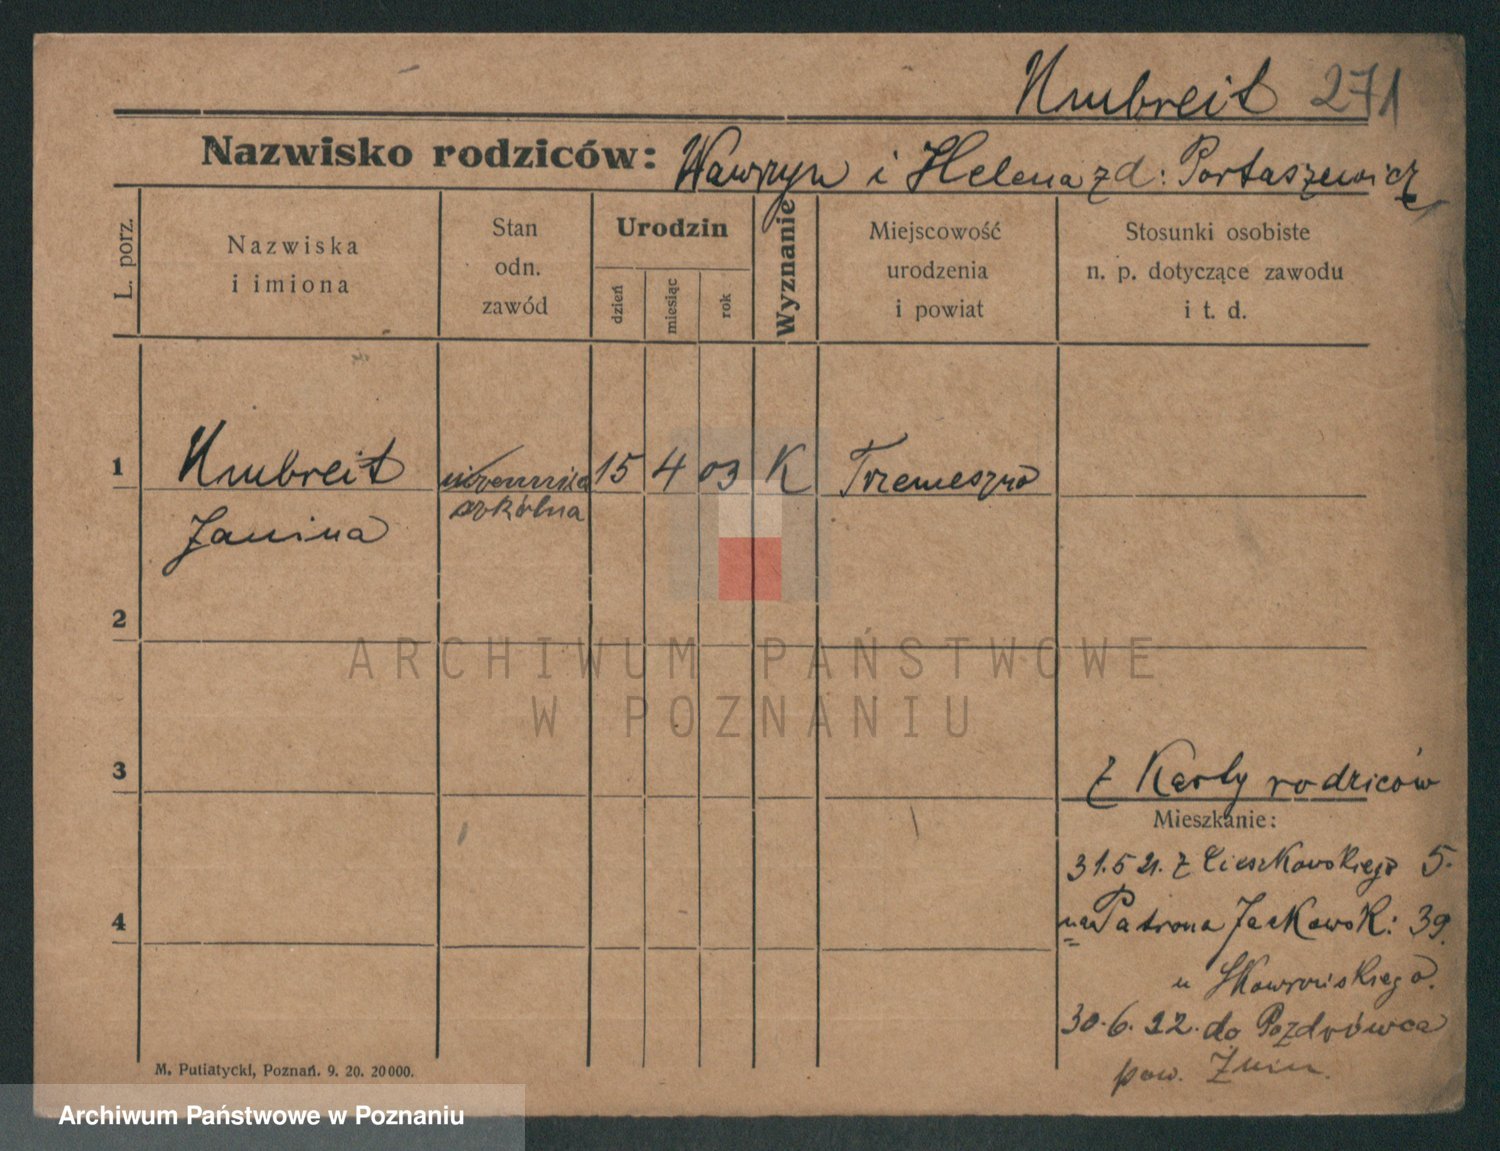 Umbreit 271
Nazwisko rodziców: Wawrzyn i Helena zd: Portaszewicz
L. porz.
Nazwiska
i imiona
Stan
odn.
zawód
Urodzin
dzień
miesiąc
rok
Wyznanie
Miejscowość
urodzenia
i powiat
Stosunki osobiste
n. p. dotyczące zawodu
i t. d.
1 Umbreit uczennica 15 4 03 K Trzemeszno
szkólna
Janina
2
ARCHIWUM PAŃSTWOWE
W POZNANIU
3
z Karty rodziców
Mieszkanie:
31.5 21. z Cieszkowskiego 5.
4
na Patrona Jackowsk: 39.
u Skowrońskiego.
30.6.22. do Pozdrówca
pow. Żnin.
M. Putiatycki, Poznań. 9. 20. 20000.
Archiwum Państwowe w Poznaniu